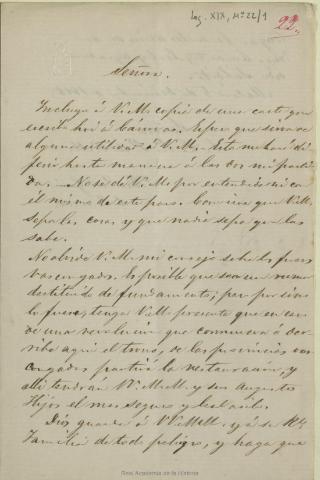 Leg. XIX, nº 22/1
22.
Señora.
Incluyo á V. M. copia de una carta que
escribo hoi á Cánovas. Espero que sirva de
alguna utilidad á V. M. Este me hará di-
ferir hasta mañana á las dos mi parti-
da. No se dé V. M. por entendida ni con
él mismo de este paso. Conviene que V. M.
sepa las cosas y que nadie sepa que las
sabe.
No olvide V. M. mi consejo sobre los fueros
vascongados. Es posible que sea un rumor
destituido de fundamento; pero por si no
lo fuera, tenga V. M. presente que en caso
de una revolucion que comience á der-
ribar aquí el trono, de las provincias vas-
congadas partirá la restauracion, y
allí tendrán V. M. y sus augustos
Hijos el mas seguro y leal asilo.
Dios guarde á V. M. y á su Rl.
Familia de todo peligro, y haga que
Real Academia de la Historia